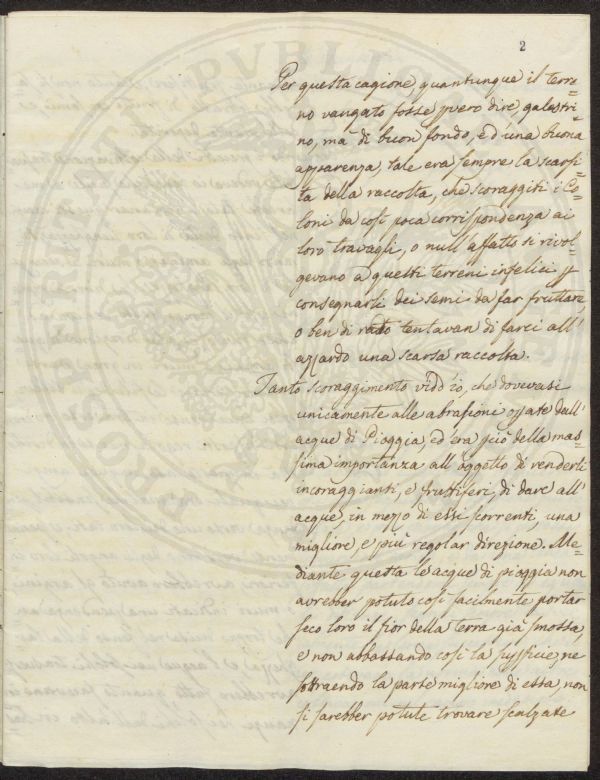 2
Per questa cagione, quantunque il terre=
no vangato fosse p vero dire, galestri=
no, mà di buon fondo, ed una buona
apparenza, tale era sempre la scarsi=
tà della raccolta, che scoraggiti i Co=
loni da così poca corrispondenza ai
loro travagli, o null'affatto si rivol=
gevano a questi terreni infelici p
consegnarli dei semi da far fruttare,
o ben di rado tentavan di farci all'
azzardo una scarsa raccolta.
Tanto scoraggimento vidd'io, che dovevasi
unicamente alle abrasioni opate dall'
acque di Pioggia, ed era pciò della mas=
sima importanza all'oggetto di renderli
incoraggianti, e fruttiferi, di dare all'
acque, in mezzo di essi scorrenti, una
migliore, e più regolar direzione. Me=
diante questa le acque di pioggia non
avrebber potuto così facilmente portar
seco loro il fior della terra già smossa,
e non abbassando così la supficie, ne
sottraendo la parte migliore di essa, non
si sarebber potute trovare scalzate